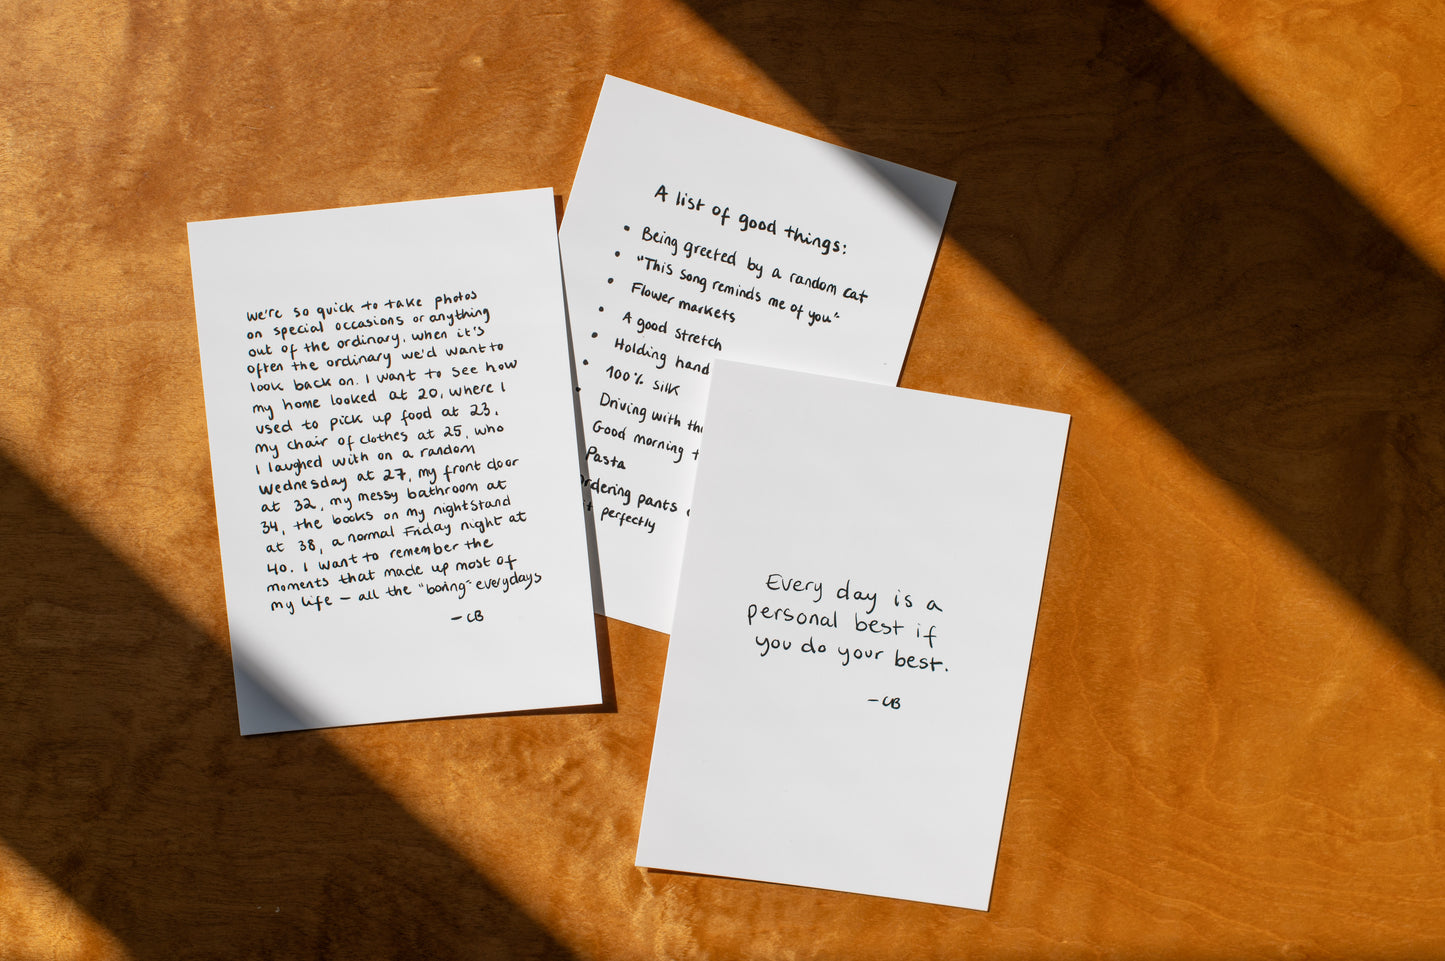 we're so quick to take photos
on special occasions or anything
out of the ordinary. when it's
often the ordinary we'd want to
look back on. I want to see how
my home looked at 20, where I
used to pick up food at 23,
my chair of clothes at 25, who
I laughed with on a random
Wednesday at 27, my front door
at 32, my messy bathroom at
34, the books on my nightstand
at 38, a normal Friday night at
40. I want to remember the
moments that made up most of
my life – all the "boring" everydays
– CB
A list of good things:
• Being greeted by a random cat
• "This song reminds me of you"
• Flower markets
• A good stretch
• Holding hand
• 100% silk
• Driving with
Good morning
Pasta
pants
perfectly
Every day is a
personal best if
you do your best.
– CB